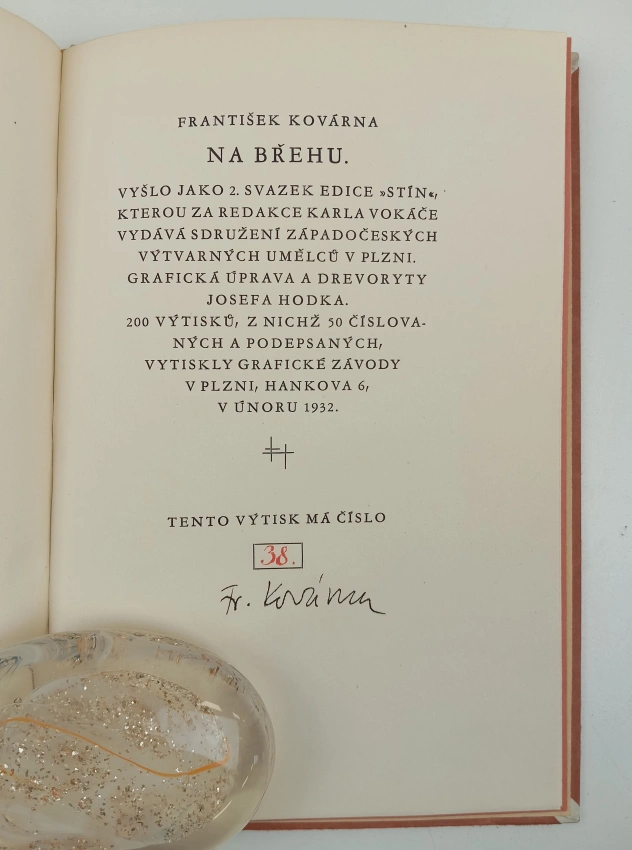 FRANTIŠEK KOVÁRNA
NA BŘEHU.
VYŠLO JAKO 2. SVAZEK EDICE »STÍN«,
KTEROU ZA REDAKCE KARLA VOKÁČE
VYDÁVÁ SDRUŽENÍ ZÁPADOČESKÝCH
VÝTVARNÝCH UMĚLCŮ V PLZNI.
GRAFICKÁ ÚPRAVA A DREVORYTY
JOSEFA HODKA.
200 VÝTISKŮ, Z NICHŽ 50 ČÍSLOVA-
NÝCH A PODEPSANÝCH,
VYTISKLY GRAFICKÉ ZÁVODY
V PLZNI, HANKOVA 6,
V ÚNORU 1932.
TENTO VÝTISK MÁ ČÍSLO
38.
Fr. Kovárna